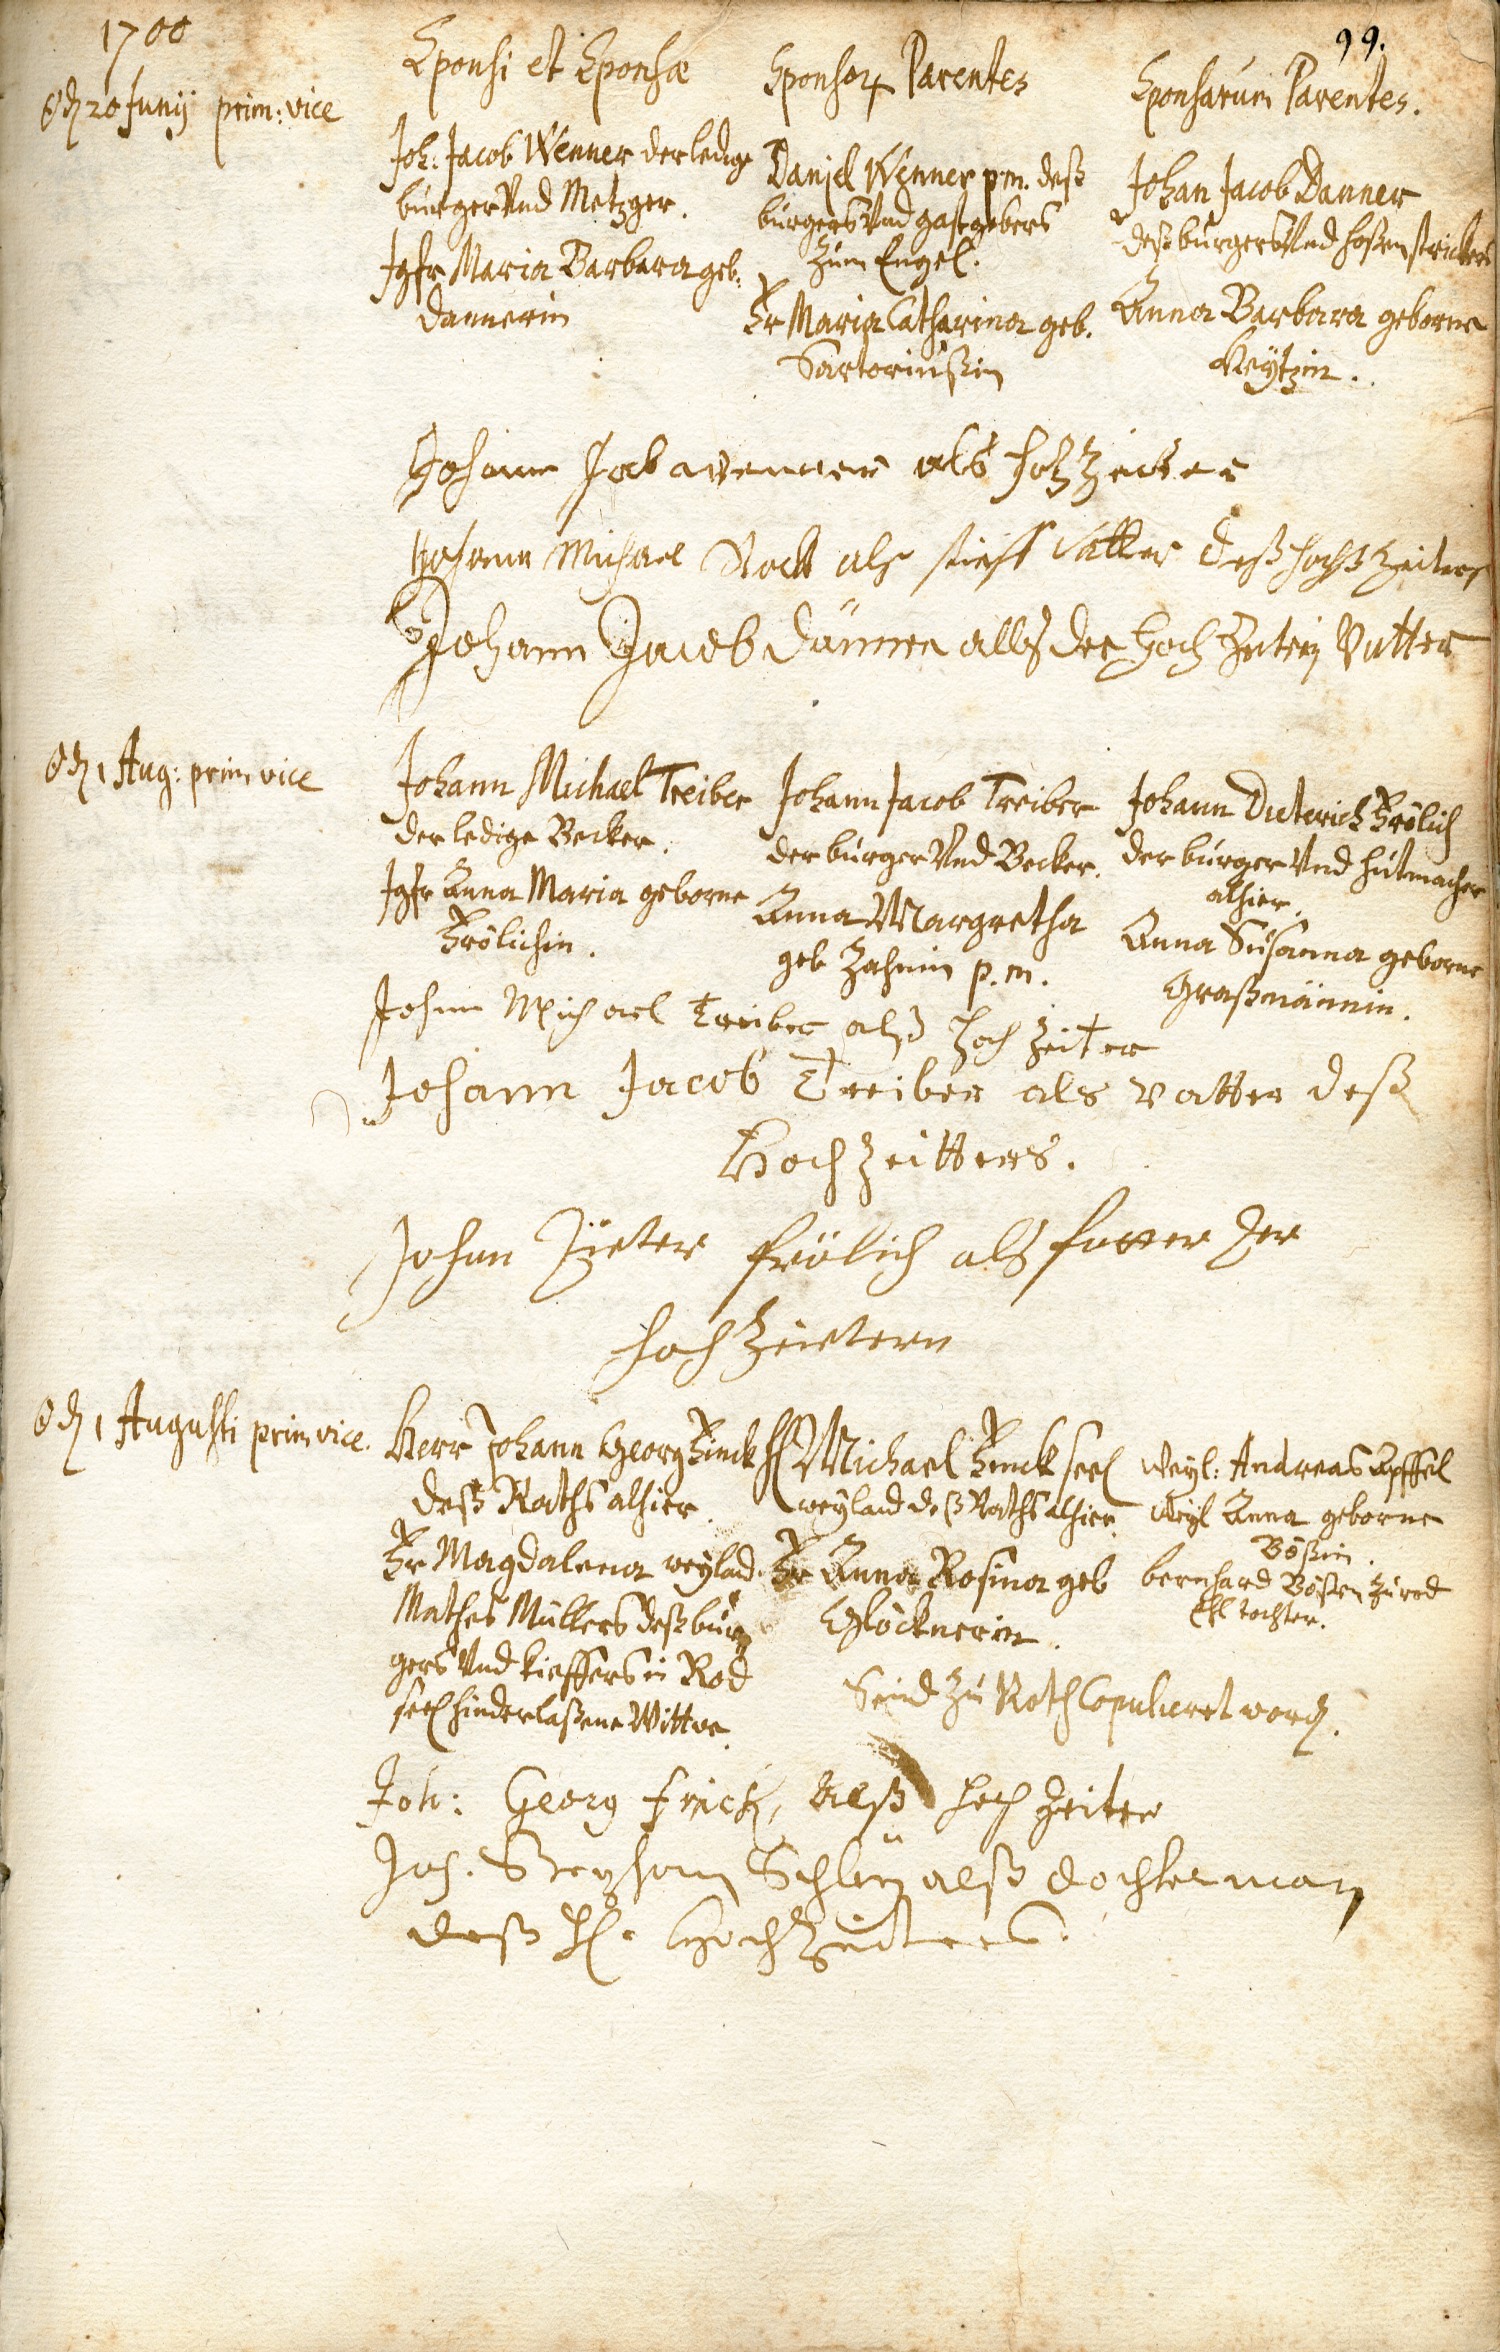 1700
99.
Sponsi et Sponsæ
Sponsor Parentes
Sponsarum Parentes.
20 Junij prim: vice
Joh: Jacob Wenner der ledige
burger Vnd Metzger.
Jgfr Maria Barbara geb:
Dannerin
Daniel Wenner p.m. deß
burgers Vnd gastgebers
zum Engel.
Fr Maria Catharina geb.
Sartoriußin
Johan Jacob Danner
deß burgers Vnd hosenstrickers
Anna Barbara geborne
Keÿtzin.
Johann Jacob wenner als hochzeiter
Johann Michael Stock als stieff Vatter deß hochzeiters
Johann Jacob Danner alls der Hochzeiterin Vatter
1 Aug: prim vice
Johann Michael Treiber
der ledige Becker.
Jgfr Anna Maria geborne
Frölichin.
Johann Jacob Treiber
der burger Vnd Becker.
Anna Margretha
geb Zahnin p.m.
Johann Dieterich Frölich
der burger Vnd hutmacher
alhier.
Anna Susanna geborne
Graßmännin.
Johann Michael Treiber alß Hochzeiter
Johann Jacob Treiber als vatter deß
Hochzeitters.
Johan Dieter frölich als fatter der
hochzeitern
1 Augusti prim vice.
Herr Johann Georg Finck
deß Raths alhier.
Fr Magdalena weyland
Mathes Müllers deß bur-
gers Vnd kieffers in Rod
seel hinderlaßene Wittwe.
H Michael Finck seel
weyland deß Raths alhier.
Fr Anna Rosina geb
Glöcknerin.
Weyl: Andreas Apffel
Weyl Anna geborne
Bößin.
bernhard Bößen zu rod
Ehl tochter.
Seind zu Roth Copuliert word.
Joh: Georg Finck, Alß Hochzeiter
Joh. Schley alß dochterman
deß H. Hochzeiters.